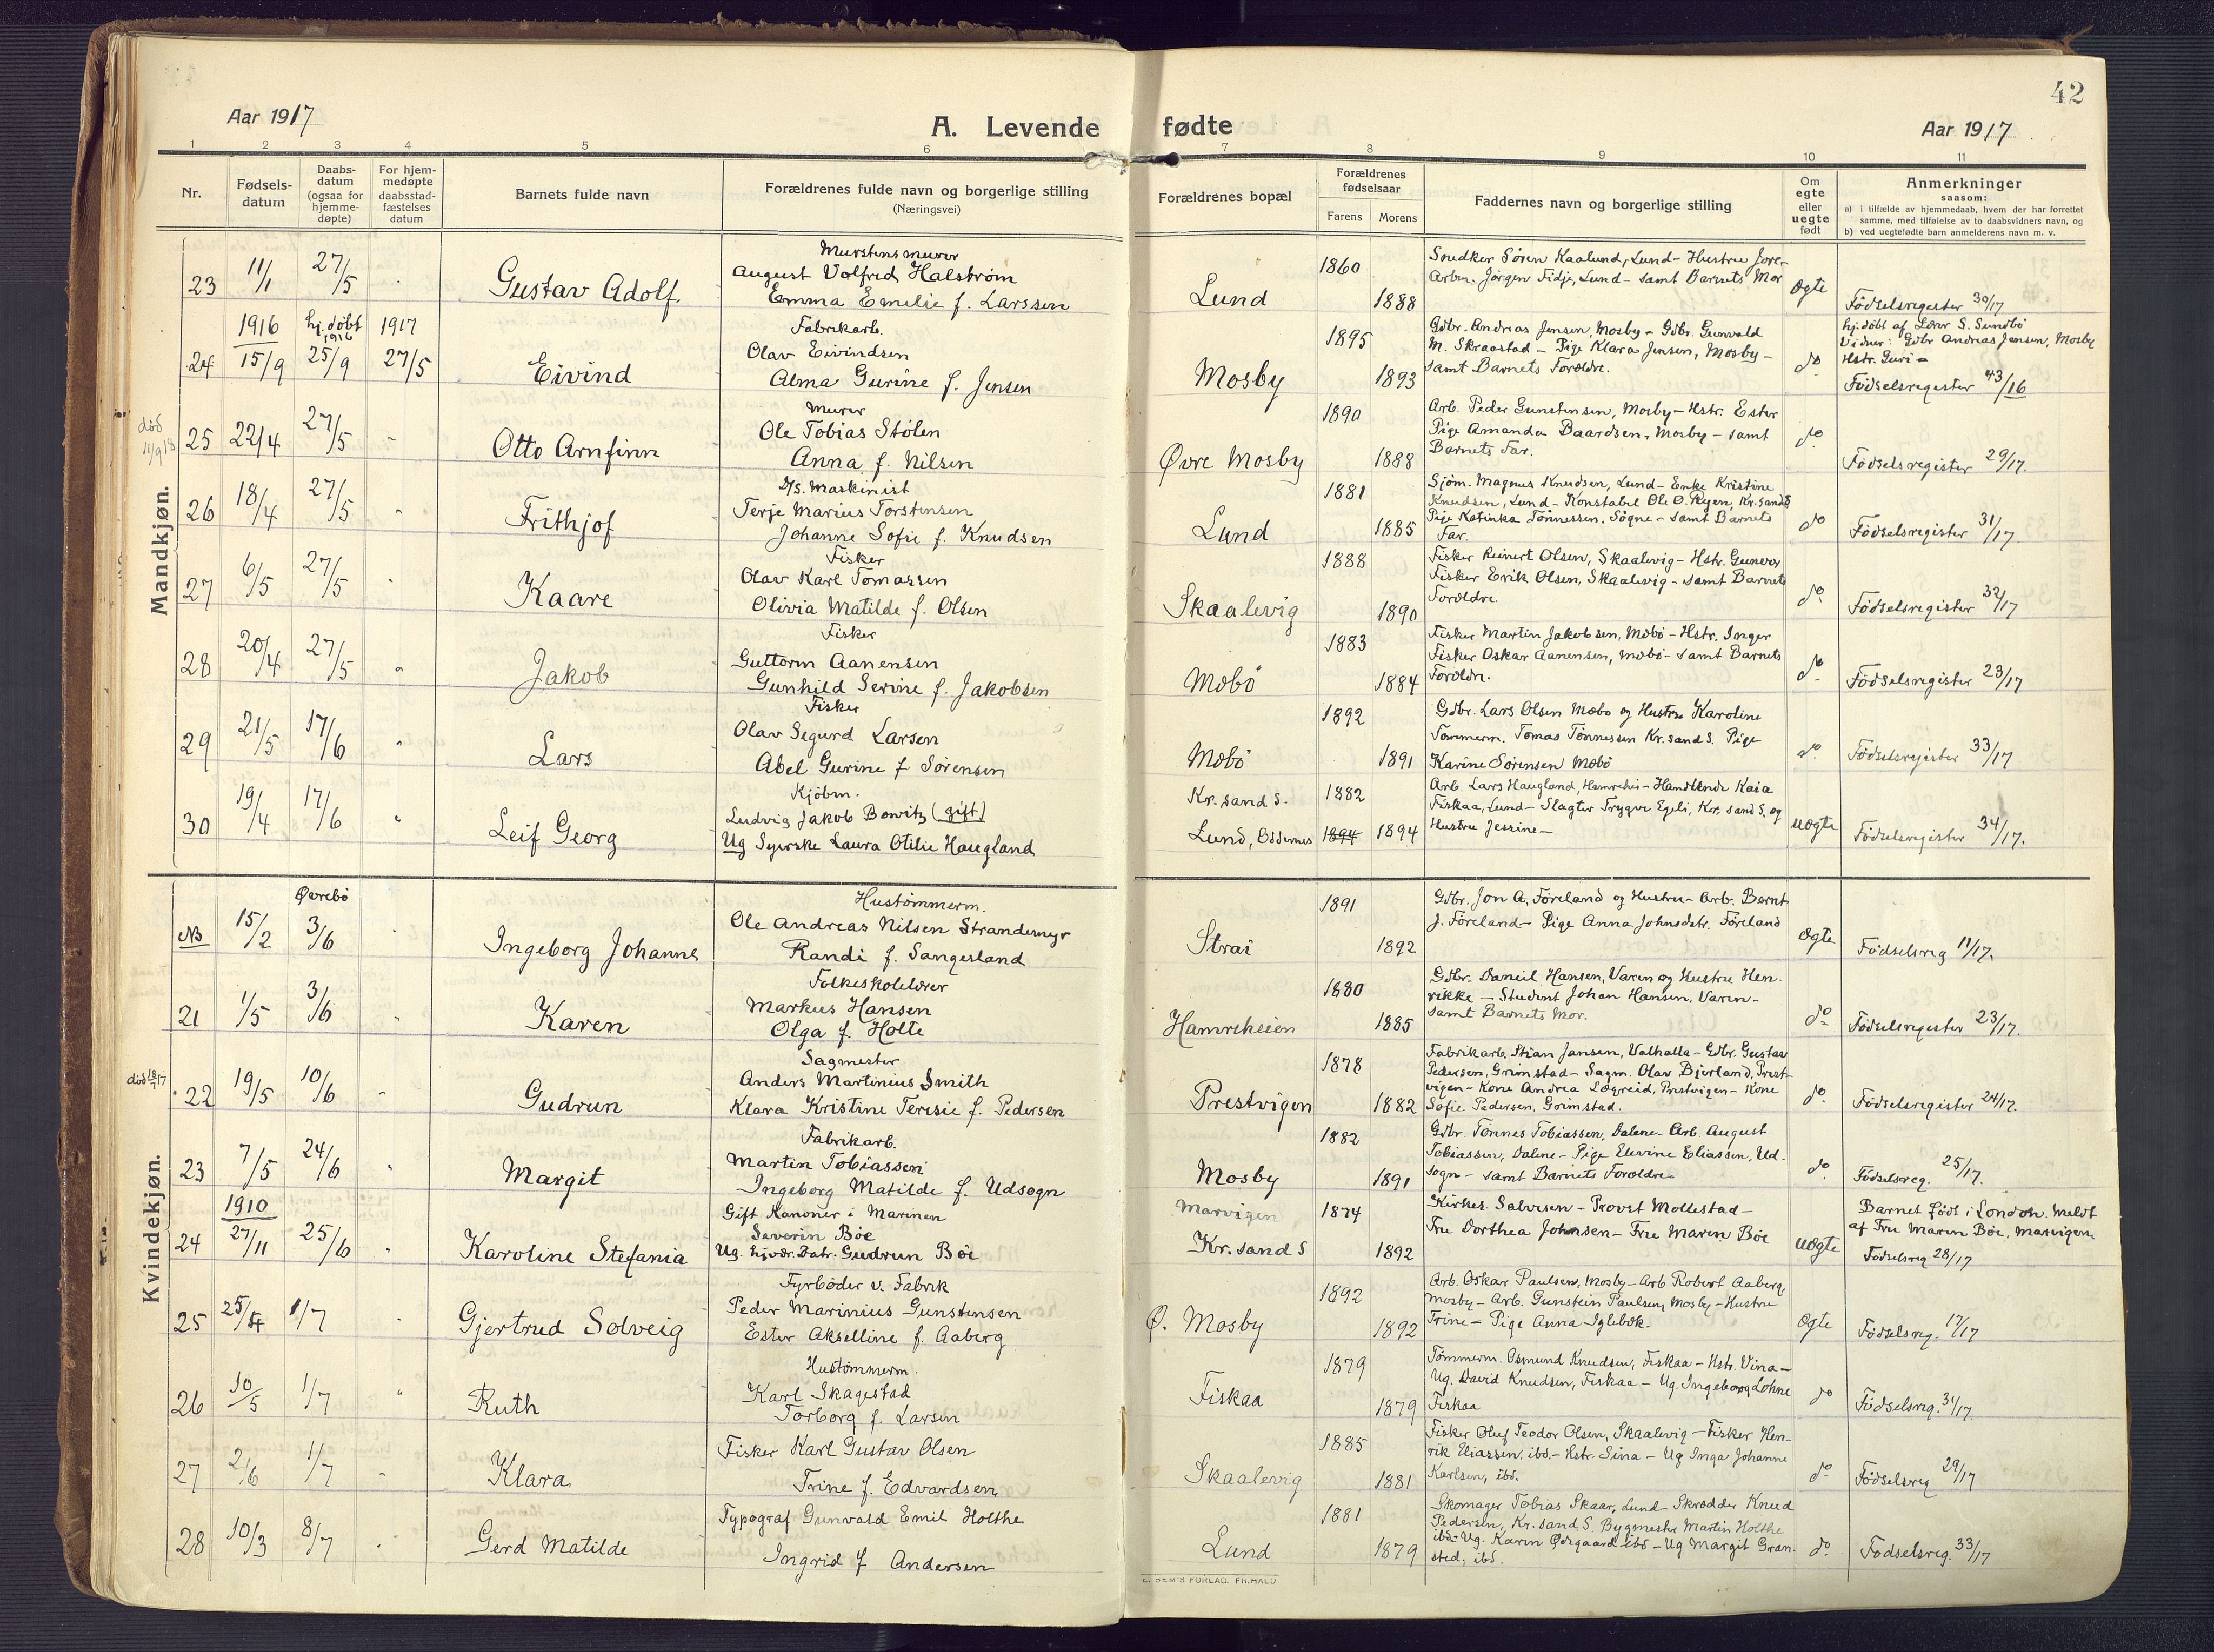 42
Aar 1917
A. Levende fødte
Aar 1917
1 2 3 4 5 6 7 8 9 10 11
Nr.
Fødsels-
datum
Daabs-
datum
(ogsaa for
hjemme-
døpte)
For hjem-
medøpte
daabsstad-
fæstelses
datum
Barnets fulde navn
Forældrenes fulde navn og borgerlige stilling
(Næringsvei)
Forældrenes bopæl
Forældrenes
fødselsaar
Farens Morens
Faddernes navn og borgerlige stilling
Om
egte
eller
uegte
født
Anmerkninger
saasom:
a) i tilfælde av hjemmedaab, hvem der har forrettet
samme, med tilføielse av to daabsvidners navn, og
b) ved uegtefødte barn anmelderens navn m. v.
Mandkjøn.
23 11/1 27/5 Gustav Adolf.
Murstensmurer
August Volfred Halstrøm
Emma Emelie f. Larssen
Lund
1860
1888
Snedker Sören Kaalund, Lund - Hustru Jore-
Arbm. Jörgen Fidje, Lund - samt Barnets Mor
Ægte
Födselsregister 30/17
24
1916
15/9
hj. döbt
1916
25/9
1917
27/5
Eivind
Fabrikarb.
Olav Eivindsen
Alma Gurine f. Jensen
Mosby
1895
1893
Gdbr. Andreas Jensen, Mosby - Gdbr. Gunvald
M. Skraastad - Pige Klara Jensen, Mosby -
samt Barnets Forældre.
do
hj. döbt af Lærer S. Sundbö
Vidner: Gdbr Andreas Jensen, Mosby
Hstr. Guri
Födselsregister 43/16
död
11/9 18
25 22/4 27/5 Otto Arnfinn
Murer
Ole Tobias Stölen
Anna f. Nilsen
Øvre Mosby
1890
1888
Arb. Peder Gunstensen, Mosby - Hstr. Ester
Pige Amanda Baardsen, Mosby - samt
Barnets Far.
do
Födselsregister 29/17.
26 18/4 27/5 Frithjof
D/S. Maskinist
Terje Marius Torstensen
Johanne Sofie f. Knudsen
Lund
1881
1885
Sjöm. Magnus Knudsen, Lund - Enke Kristine
Knudsen, Lund - Konstabel Ole O. Ryen, Kr.sand S
Pige Katinka Tönnessen, Sögne - samt Barnets
Far.
do
Födselsregister 31/17.
27 6/5 27/5 Kaare
Fisker
Olav Karl Tomassen
Olivia Matilde f. Olsen
Skaalevig
1888
1890
Fisker Reinert Olsen, Skaalevig - Hstr. Gunvor
Fisker Erik Olsen, Skaalevig - samt Barnets
Forældre.
do
Födselsregister 32/17
28 20/4 27/5 Jakob
Fisker
Guttorm Aanensen
Gunhild Serine f. Jakobsen
Mæbö
1883
1884
Fisker Martin Jakobsen, Mæbö - Hstr. Inger
Fisker Oskar Aanensen, Mæbö - samt Barnets
Forældre.
do
Födselsregister 23/17
29 21/5 17/6 Lars
Fisker
Olav Segurd Larsen
Abel Gurine f Sörensen
Mæbö
1892
1891
Gdbr. Lars Olsen Mæbö og Hustru Karoline
Tömmerm. Tomas Tönnessen Kr.sand S. Pige
Karine Sörensen Mæbö
do
Födselsregister 33/17
30 19/4 17/6 Leif Georg
Kjöbm.
Ludvig Jakob Bowitz (gift)
Ug Syerske Laura Otilie Haugland
Kr.sand S.
Lund, Oddernes
1882
1894 1894
Arb. Lars Haugland, Hamreheien - Handlende Kaia
Fiskaa, Lund - Slagter Trygve Egeli, Kr.sand S. og
Hustru Jessine -
uægte
Födselsregister 34/17.
Kvindekjøn.
NB 15/2
Øvrebö
3/6
Ingeborg Johanne
Hustömmerm.
Ole Andreas Nilsen Strandemyr
Randi f. Sangesland
Strai
1891
1892
Gdbr. Jon A. Föreland og Hustru - Arb. Bernt
J. Föreland - Pige Anna Johnsdatr. Föreland
Ægte
Födselsreg 11/17.
21 1/5 3/6 Karen
Folkeskolelærer
Markus Hansen
Olga f. Holte
Hamreheien
1880
1885
Gdbr. Daneil Hansen, Varen og Hustru Hen-
rikke - Student Johan Hansen, Varen -
samt Barnets Mor.
do
Födselsregister 23/17.
död 18/7 17
22 19/5 10/6 Gudrun
Sagmester
Anders Martinius Smith
Klara Kristine Teresie f. Pedersen
Prestvigen
1878
1882
Fabrikarb. Stian Jansen, Valhalla - Gdbr. Gustav
Pedersen, Grimstad - Sagm. Olav Bjerland, Prest-
vigen - Kone Andrea Lægreid, Prestvigen - Kone
Sofie Pedersen, Grimstad.
do.
Födselsregister 24/17.
23 7/5 24/6 Margit
Fabrikarb.
Martin Tobiassen
Ingeborg Matilde f. Udsogn
Mosby
1882
1891
Gdbr. Tönnes Tobiassen, Dalene - Arb. August
Tobiassen, Dalene - Pige Elevine Eliassen, Ud-
sogn - samt Barnets Forældre
do
Födselsreg. 25/17.
24
1910
27/11 25/6 Karoline Stefania
Gift Kanoner i Marinen
Severin Böe
Ug. Gudrun Böe
Marvigen
Kr.sand S
1874
1892
Kirkes. Salvesen - Provst Mollestad -
Fru Dorthea Johnsen - Fru Maren Böe
uægte
Barnet födt i London. Meldt
af Fru Maren Böe, Marvigen.
Födselsreg 28/17
25 25/4 1/7 Gjertrud Solveig
Fyrböder v. Fabrik
Peder Marinius Gunstensen
Ester Akselline f. Aaberg
Ø. Mosby
1892
1892
Arb. Oskar Paulsen, Mosby - Arb Robert Aaberg,
Mosby - Arb. Gunstein Paulsen, Mosby - Hustru
Trine - Pige Anna Iglebæk.
Ægte
Födselsreg. 17/17
26 10/5 1/7 Ruth
Hustömmerm.
Karl Skagestad
Torborg f. Larsen
Fiskaa
1879
1879
Tömmerm. Osmund Knudsen, Fiskaa - Hstr. Vina -
Ug. David Knudsen, Fiskaa - Ug. Ingeborg Lohne
Fiskaa
do
Födselsreg. 31/17.
27 2/6 1/7 Klara
Fisker Karl Gustav Olsen
Trine f. Edvardsen
Skaalevig
1885
1881
Fisker Oluf Teodor Olsen, Skaalevig - Fisker Hen-
rik Eliassen, ibd. - Hstr. Sina - Ug Inga Johanne
Karlsen, ibd.
do
Födselsreg 29/17
28 10/3 8/7 Gerd Matilde
Typograf Gunvald Emil Holthe
Ingrid f Andersen
Lund
1881
1879
Skomager Tobias Skaar, Lund - Skrædder Knud
Pedersen, Kr.sand S. Bygmester Martin Holthe
ibd - Ug. Karen Ødegaard ibd - Ug Margit Gran-
sted, ibd.
do.
Födselsreg. 33/17
E. SEM'S FORLAG. FR.HALD